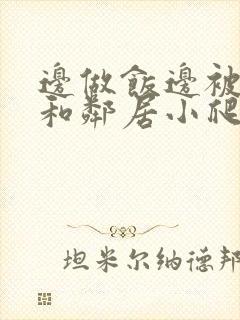 邊做飯邊被
和鄰居小爬
坦米尔纳德邦